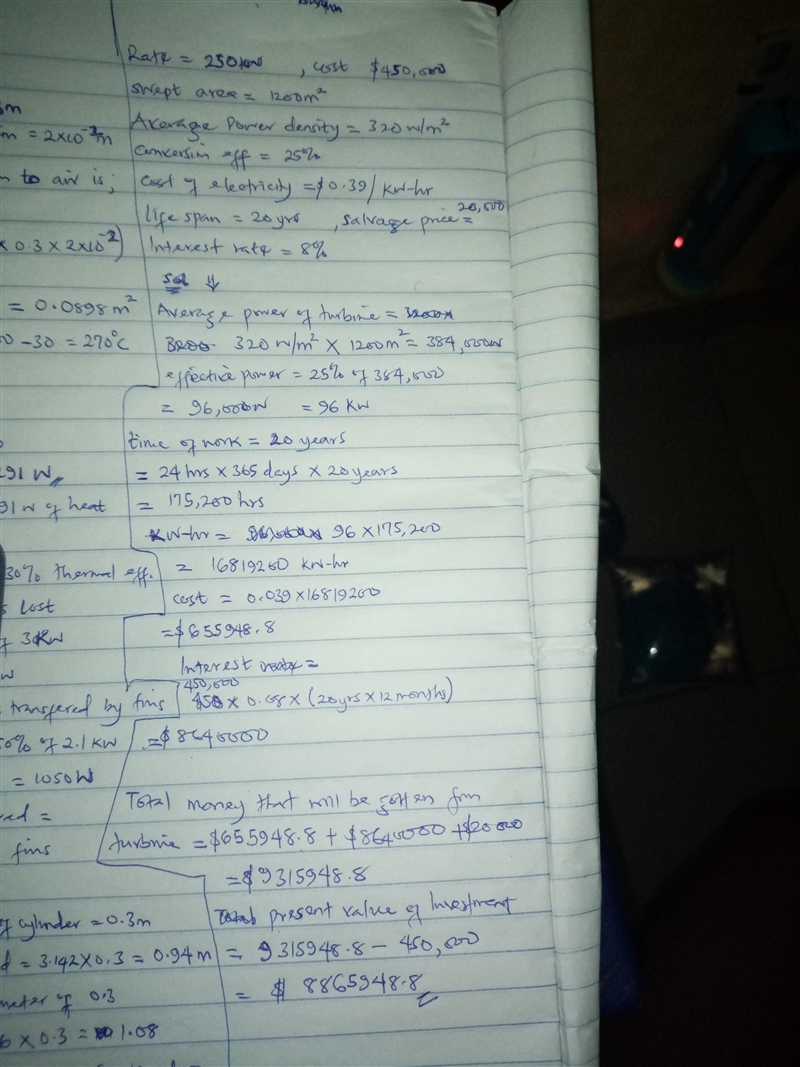 Rate = 250kw , cost $450,000
swept area = 1200m²
Average Power density = 320 w/m²
conversion eff = 25%
cost of electricity = $0.39/kw-hr
life span = 20yrs , salvage price = 20,000
Interest rate = 8%
Sol ↓
Average power of turbine =
320 w/m² × 1200m² = 384,000w
effective power = 25% of 384,000
= 96,000w = 96 Kw
time of work = 20 years
= 24 hrs × 365 days × 20 years
= 175,200 hrs
KW-hr = 96 × 175,200
= 16819200 kw-hr
cost = 0.039 × 16819200
= $655948.8
Interest =
450,000 × 0.08 × (20yrs × 12 months)
= $8640000
Total money that will be gotten from
turbine = $655948.8 + $8640000 + $20000
= $9315948.8
present value of Investment
= 9315948.8 - 450,000
= $ 8865948.8
m
m = 2×10⁻²m
to air is;
× 0.3 × 2×10⁻²)
= 0.0898 m²
0 - 30 = 270°C
291 W
91 w of heat
30% thermal eff.
lost
of 3Kw
w
transfered by fins
50% of 2.1 KW
= 1050W
=
fins
of cylinder = 0.3m
d = 3.142×0.3 = 0.94m
meter of 0.3
6 × 0.3 = 1.08